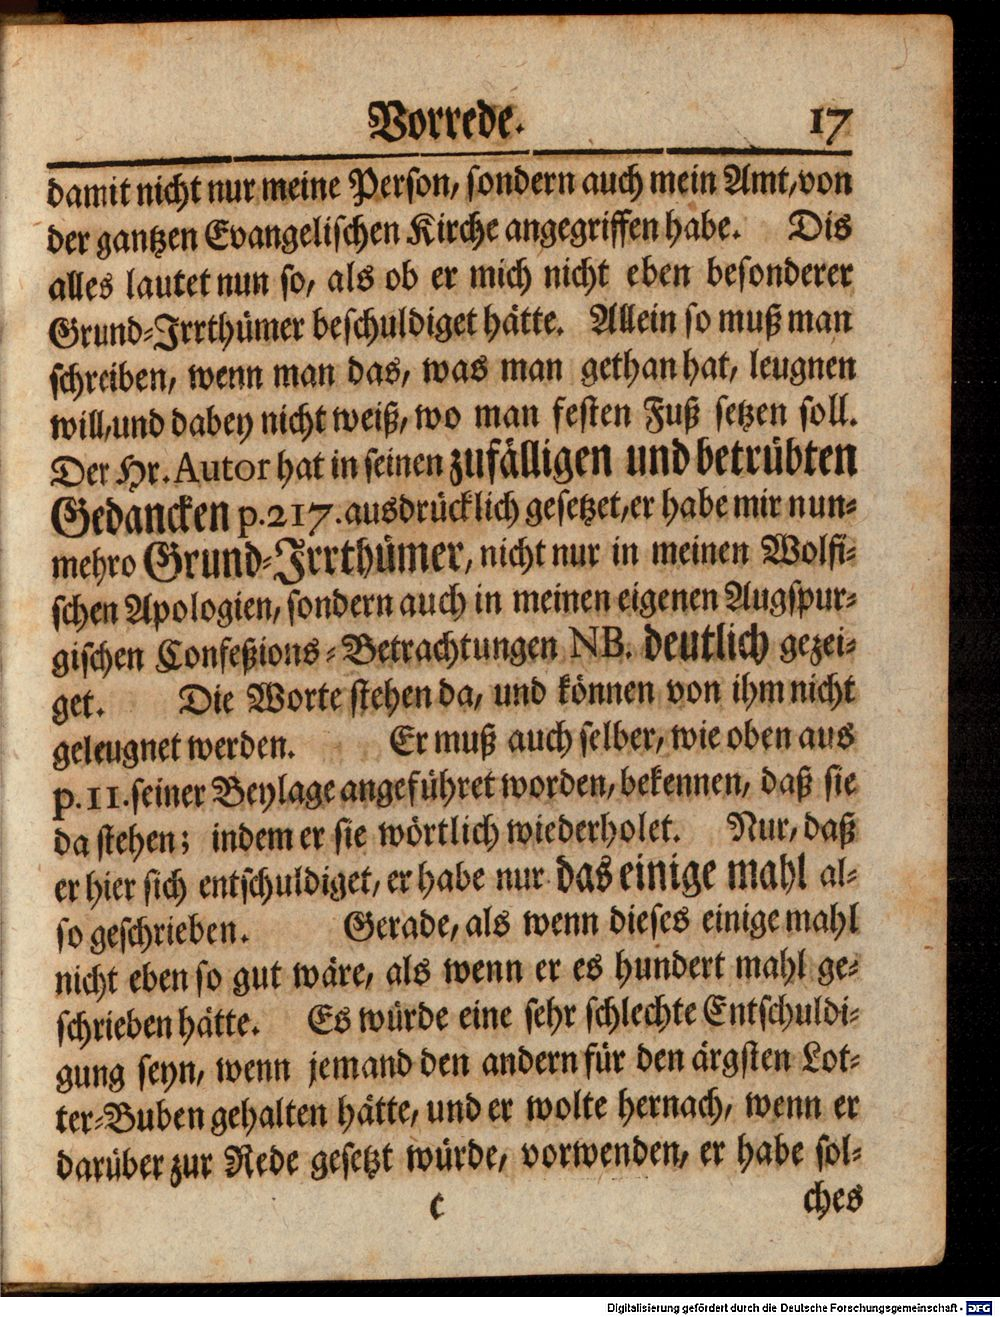 Vorrede. 17
damit nicht nur meine Person, sondern auch mein Amt, von
der gantzen Evangelischen Kirche angegriffen habe. Dis
alles lautet nun so, als ob er mich nicht eben besonderer
Grund-Irrthümer beschuldiget hätte. Allein so muß man
schreiben, wenn man das, was man gethan hat, leugnen
will, und dabey nicht weiß, wo man festen Fuß setzen soll.
Der Hr. Autor hat in seinen zufälligen und betrübten
Gedancken p. 217. ausdrücklich gesetzet, er habe mir nun-
mehro Grund-Irrthümer, nicht nur in meinen Wolfi-
schen Apologien, sondern auch in meinen eigenen Augspur-
gischen Confeßions-Betrachtungen NB. deutlich gezei-
get. Die Worte stehen da, und können von ihm nicht
geleugnet werden. Er muß auch selber, wie oben aus
p. 11. seiner Beylage angeführet worden, bekennen, daß sie
da stehen; indem er sie wörtlich wiederholet. Nur, daß
er hier sich entschuldiget, er habe nur das einige mahl al-
so geschrieben. Gerade, als wenn dieses einige mahl
nicht eben so gut wäre, als wenn er es hundert mahl ge-
schrieben hätte. Es würde eine sehr schlechte Entschuldi-
gung seyn, wenn jemand den andern für den ärgsten Lot-
ter-Buben gehalten hätte, und er wolte hernach, wenn er
darüber zur Rede gesetzt würde, vorwenden, er habe sol-
c ches
Digitalisierung gefördert durch die Deutsche Forschungsgemeinschaft - DFG